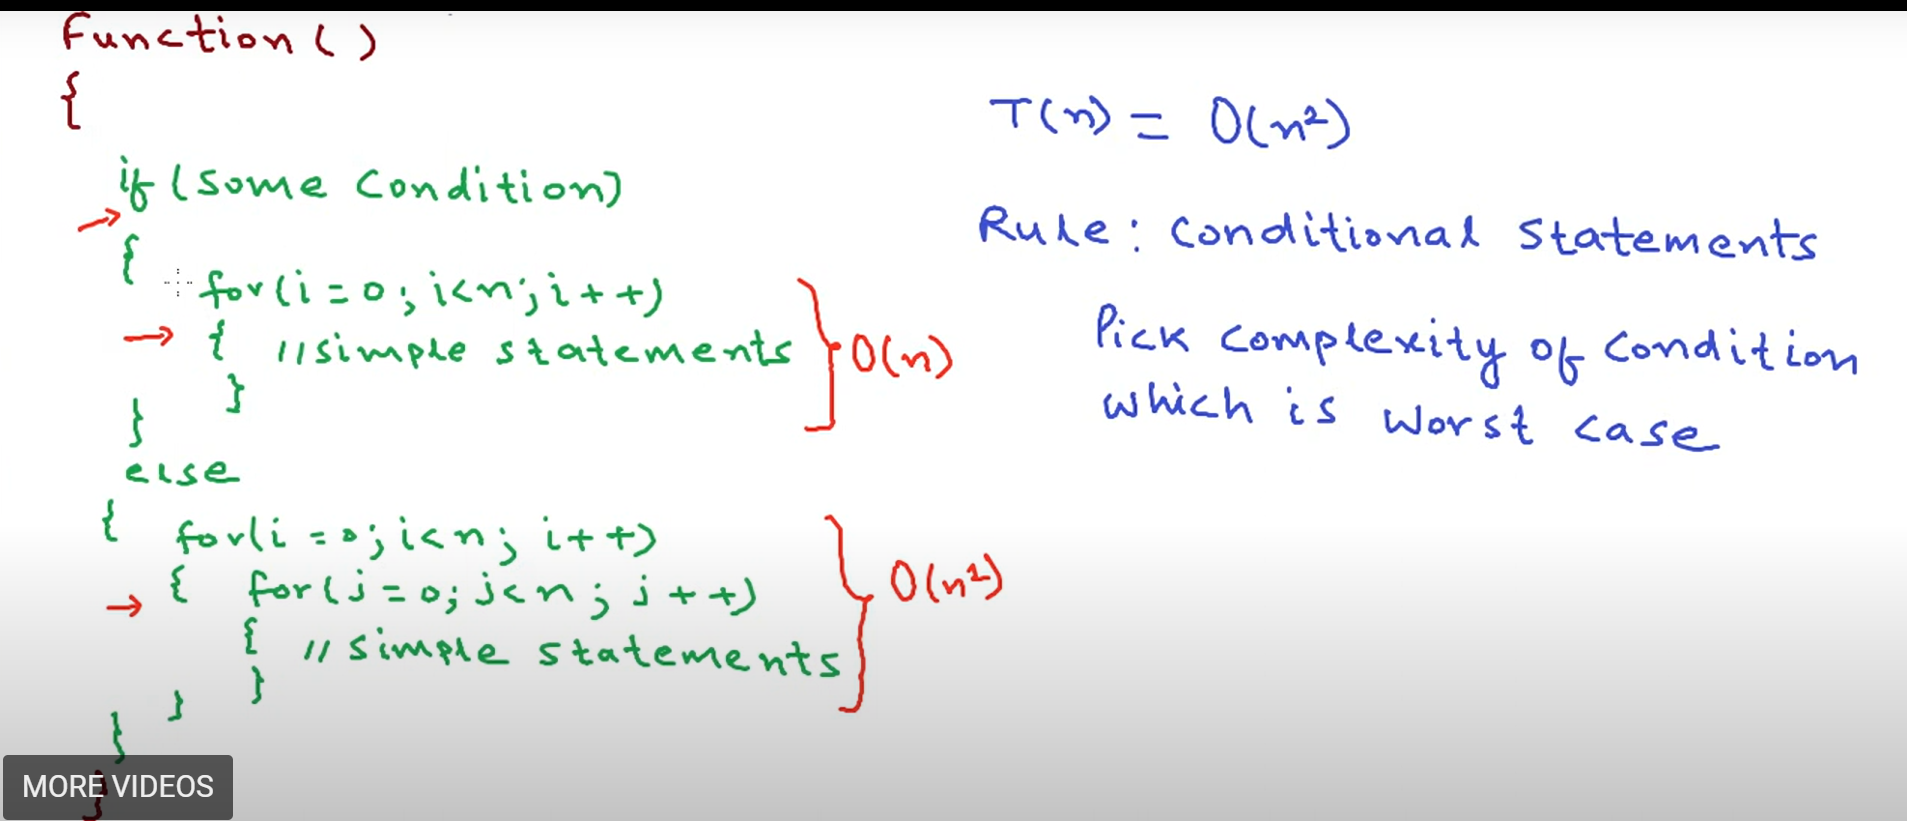 Function()
{
if (some condition)
{
for(i=0; i<n; i++)
{ //simple statements
}
}
O(n)
else
{ for(i=0; i<n; i++)
{ for(j=0; j<n; j++)
{ // simple statements
}
}
}
O(n²)
}
T(n) = O(n²)
Rule: conditional statements
Pick complexity of condition
which is worst case
MORE VIDEOS